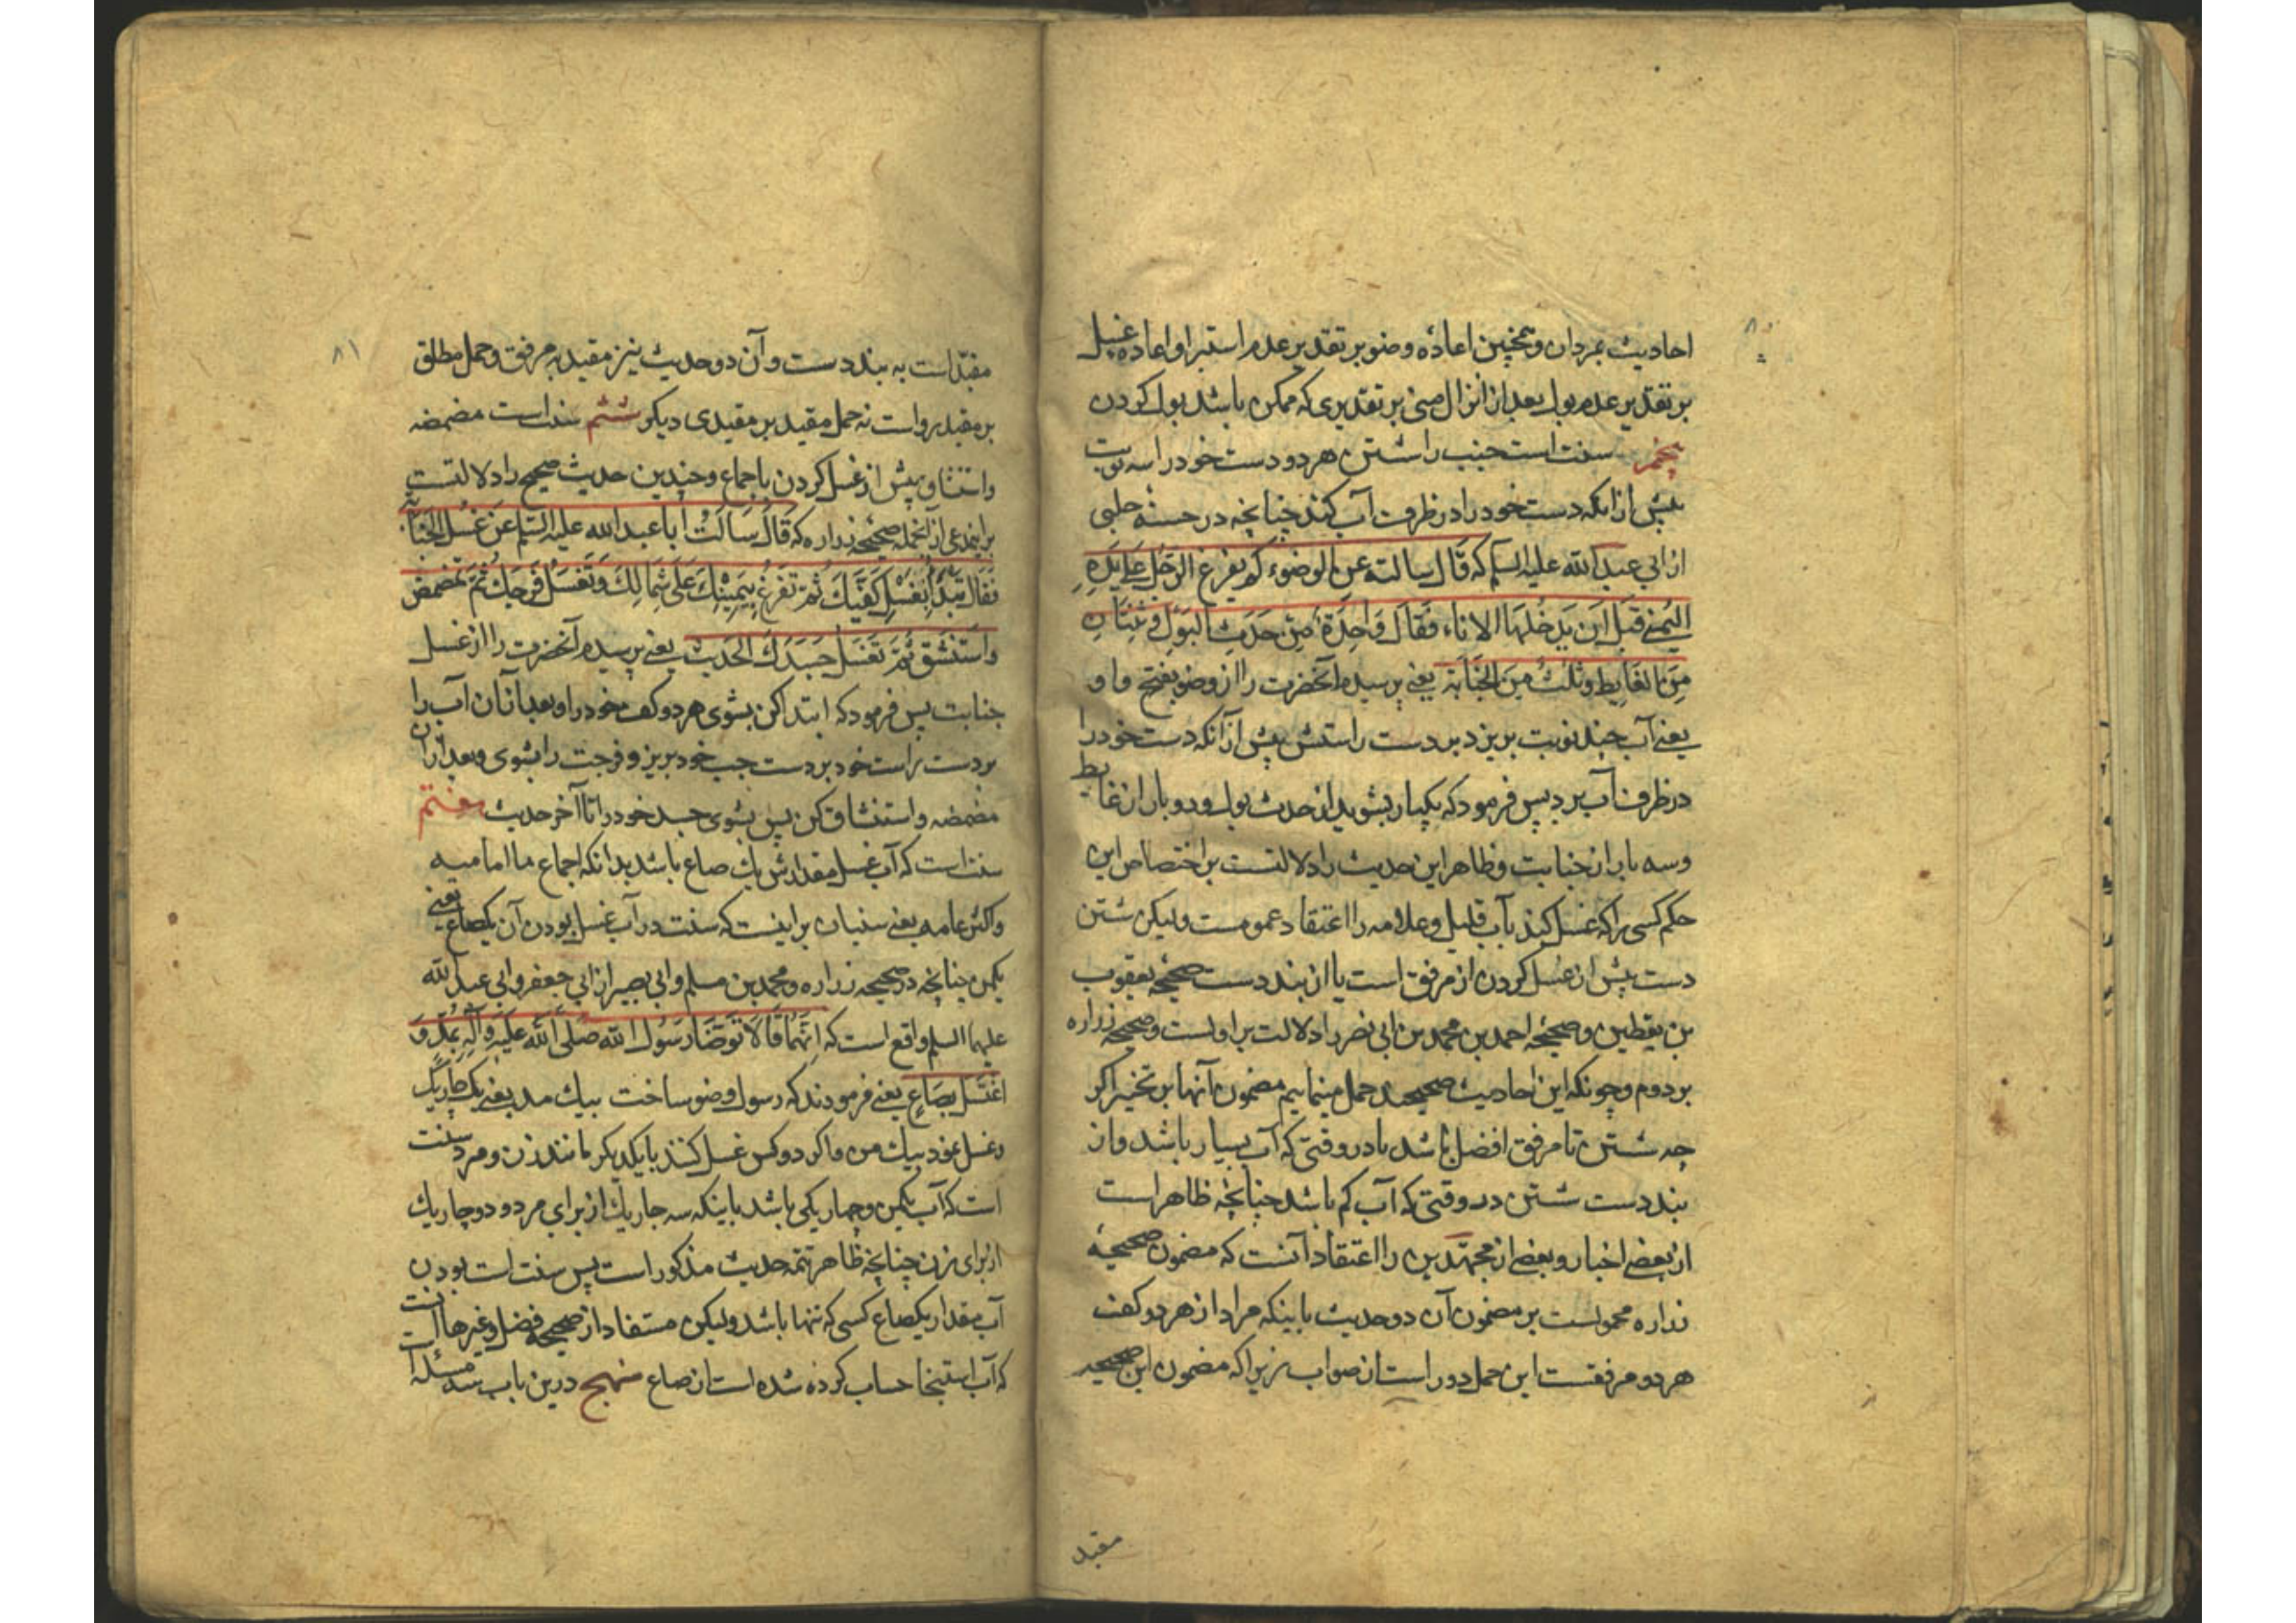 ۸۰
احادیث بمردان و همچنین اعادهٔ وضو بر تقدیر عدم استبرا و اعاده غسل
بر تقدیر عدم بول بعد از انزال منی بر تقدیری که ممکن باشد بول کردن
پنجم سنت است جنب را شستن هر دو دست خود را سه نوبت
پیش از آنکه دست خود را در ظرف آب کند چنانچه در حسنهٔ حلبی
از ابی عبد الله علیه السلم که قَالَ سالته عنِ الوضوء کم یفرغ الرّجُل علی یَدِهِ
الیُمنی قبلَ اَن یدخُلهَا الاناء فَقَالَ وَاحِدَةٌ مِن حَدَثِ البَولِ وَثِنتَانِ
مِنَ الغَایِطِ وثَلثٌ مِنَ الجَنَابَة یعنی پرسیدم آنحضرت را از وضو بفتح واو
یعنی آب چند نوبت بریزد بر دست راستش پیش از آنکه دست خود را
در ظرف آب برد پس فرمود که یکبار بشوید از حدث بول و دو بار از غایط
و سه بار از جنابت و ظاهر این حدیث را دلالتست بر اختصاص این
حکم کسی را که غسل کند بآب قلیل و علامه را اعتقاد عمومست ولیکن شستن
دست پیش از غسل کردن از مرفق است یا از بند دست صحیحهٔ یعقوب
بن یقطین و صحیحهٔ احمد بن محمد بن ابی نصر را دلالت بر اولست و صحیحه زراره
بر دوم و چونکه این احادیث صحیحند حمل مینمایم مضمون آنها بر تخییر اکر
چه شستن تا مرفق افضل باشد یا در وقتی که آب بسیار باشد و از
بند دست شستن در وقتی که آب کم باشد چنانچه ظاهر است
از بعضی اخبار و بعضی از مجتهدین را اعتقاد آنست که مضمون صحیحهٔ
زراره محمولست بر مضمون آن دو حدیث باینکه مراد از هر دو کف
هر دو مرفقست این حمل دور است از صواب زیرا که مضمون این صحیحه
مقید
۸۱
مقیّد است به بند دست و آن دو حدیث نیز مقید به مرفق و حمل مطلق
بر مقید رواست نه حمل مقید بر مقیدی دیکر ششم سنت است مضمضه
و استنشاق پیش از غسل کردن باجماع و چندین حدیث صحیح را دلالتست
بر این مدعی از آنجمله صحیحه زراره که قَالَ سَالتُ ابا عبد الله علیه السّلم عَن غسُل الجَنابَة
فقال تَبدَأُ بغَسلِ کَفَّیكَ ثُمّ تَفرغُ بِیَمِینِكَ عَلی شِمَالِكَ وَتَغسَلُ فَرجَكَ ثُمَّ تمَضمَض
وَاستَنشق ثُمّ تَغسَل جَسَدَكَ الحَدیث یعنی پرسیدم آنحضرت را از غسل
جنابت پس فرمود که ابتدا کن بشوی هر دو کف خود را و بعد از آن آب را
بر دست راست خود بر دست چپ خود بریز و فرجت را بشوی و بعد از آن
مضمضه و استنشاق کن پس بشوی جسد خود را تا آخر حدیث هفتم
سنت است که آب غسل مقدارش یك صاع باشد بدانکه اجماع ما امامیه
و اکثر عامه یعنی سنیان بر اینست که سنت در آب غسل بودن آن یکصاع یعنی
یکمن چنانچه در صحیحه زراره و محمد بن مسلم و ابی بصیر از ابی جعفر و ابی عبد الله
علیهما السلم واقع است که اِنَّهُمَا قَالَا تَوَضَّا رَسُول الله صَلَّی الله عَلَیهِ وَآلِهِ بِمُدٍّ وَ
اغتَسَل بِصَاعٍ یعنی فرمودند که رسول وضو ساخت بیك مد یعنی یك چاریك
و غسل نمود بیك من و اکر دو کس غسل کنند با یکدیکر مانند زن و مرد سنت
است که آب یکمن و چهار یکی باشد باینکه سه چاریك از برای مرد و دو چاریك
از برای زن چنانچه ظاهر تتمه حدیث مذکور است پس سنت است بودن
آب مقدار یکصاع کسی که تنها باشد ولیکن مستفاد از صحیحه فضل و غیرها آنست
که آب استنجا حساب کرده شده است از صاع منهج درین باب سه مسئله است